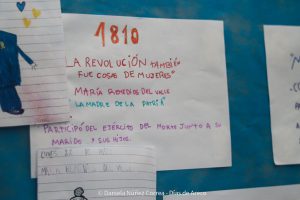 1810
LA REVOLUCIÓN TAMBIÉN
FUE COSAS DE MUJERES"
MARÍA REMEDIOS DEL VALLE
"LA MADRE DE LA PATRIA"
PARTICIPÓ DEL EJÉRCITO DEL NORTE JUNTO A SU
MARIDO Y SUS HIJOS.
© Daniela Nuñez Correa - Días de Areco